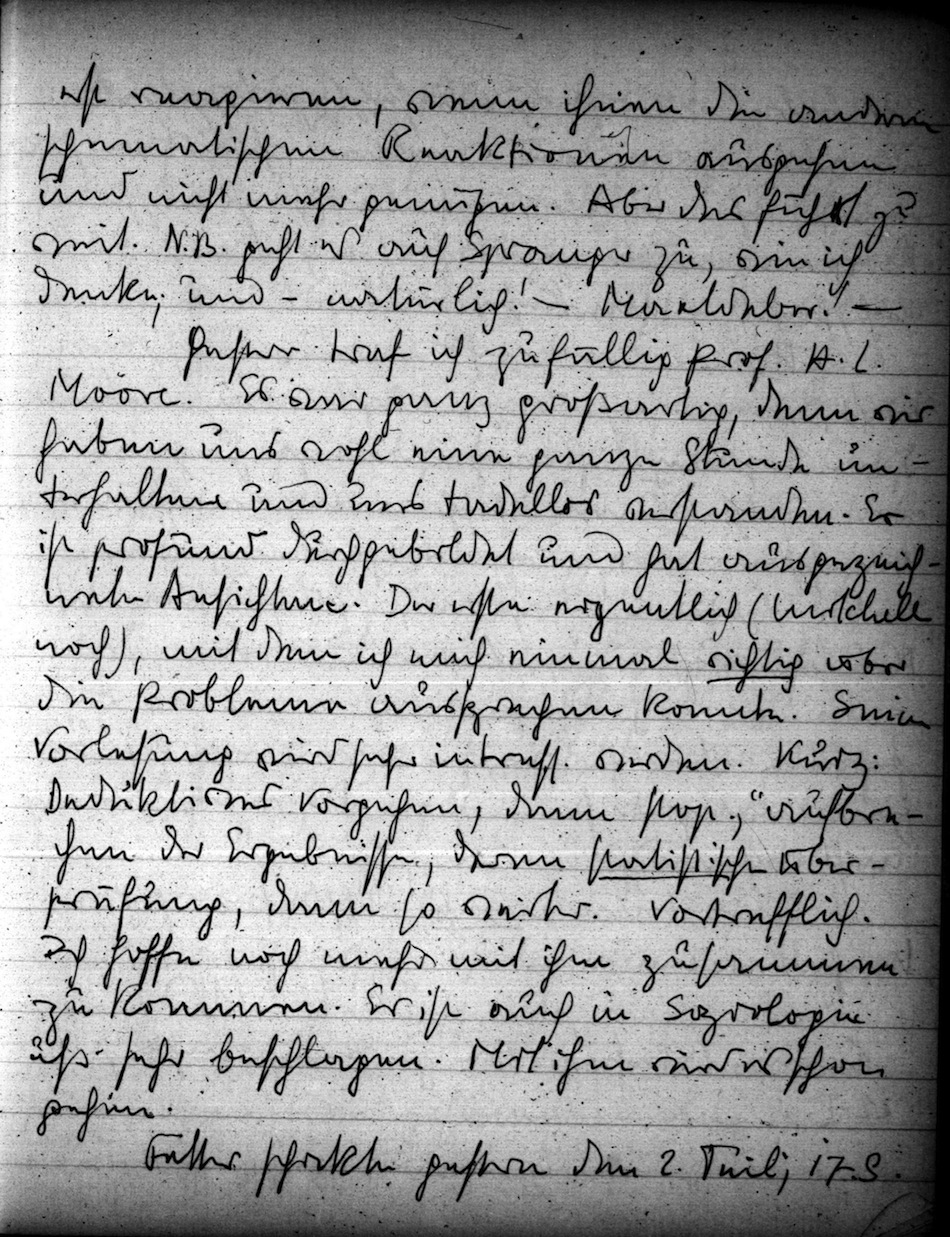 erst reagieren, wenn ihnen die anderen
schematischen Reaktionen ausgehen
und nicht mehr genügen. Aber das führt zu
weit. N.B. geht er auch Spranger zu, wie ich
denke; und – natürlich! – Mandeber! –
Gestern traf ich zufällig Prof. H. L.
Moore. Es war ganz großartig, denn wir
haben uns wohl eine ganze Stunde un-
terhalten und uns tadellos verstanden. Er
ist profund durchgebildet und hat ausgezeich-
nete Ansichten. Der erste eigentlich (Mitchell
noch), mit dem ich mich einmal richtig über
die Probleme aussprechen konnte. Seine
Vorlesung wird sehr intress. werden. Kurz:
Deduktives Vorgehen, dann stop., "
der Ergebnisse, deren statistische Über-
prüfung, dann so weiter. Vortrefflich.
Ich hoffe noch mehr mit ihm zusammen
zu kommen. Er ist auch in Soziologie
usf. sehr beschlagen. Mit ihm wird es schon
gehen.
schickte gestern den 2. Teil, 17 S.